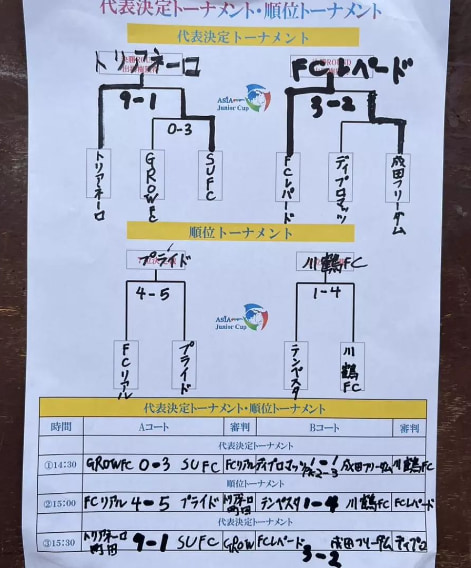 代表決定トーナメント・順位トーナメント
代表決定トーナメント
トリアネーロ
FCレパード
9-1
3-2
ASIA Junior Cup
0-3
トリアネーロ
GROWFC
SUFC
FCレパード
ディプロマッツ
成田フリーダム
順位トーナメント
プライド
川鶴FC
4-5
1-4
ASIA Junior Cup
FCリアル
プライド
テンペスタ
川鶴FC
代表決定トーナメント・順位トーナメント
時間 Aコート 審判 Bコート 審判
代表決定トーナメント
①14:30 GROWFC 0-3 SUFC FCリアル ディプロマッツ 1-1 PK2-3 成田フリーダム 川鶴FC
順位トーナメント
②15:00 FCリアル 4-5 プライド トリアネーロ町田 テンペスタ 1-4 川鶴FC FCレパード
代表決定トーナメント
③15:30 トリアネーロ町田 9-1 SUFC GROW FCレパード 3-2 成田フリーダム ディプロ